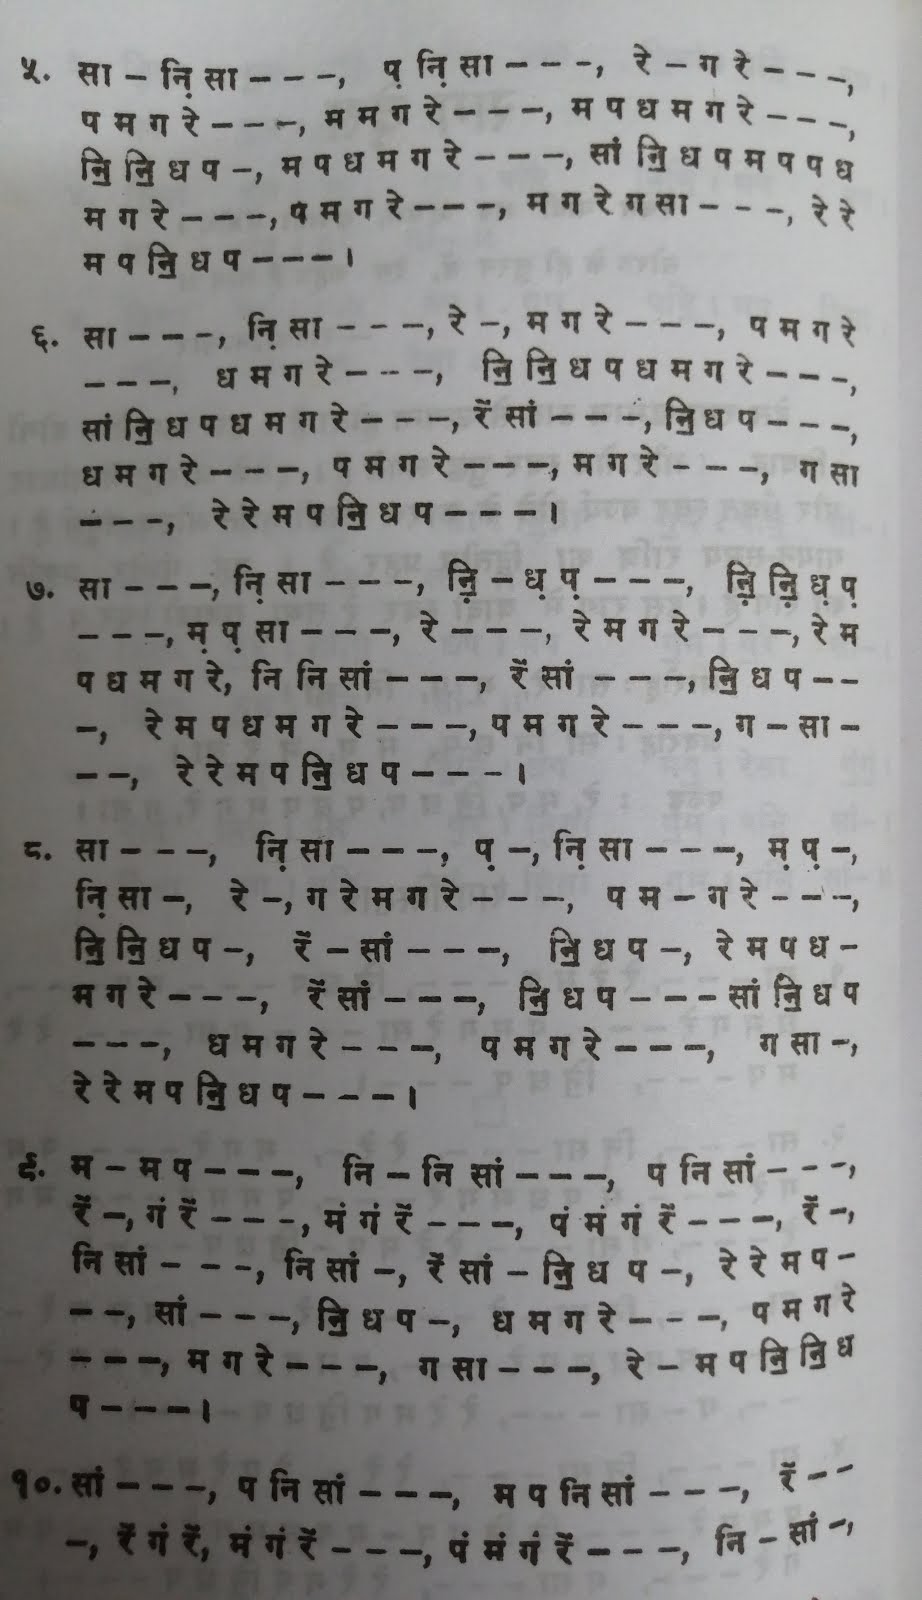 ५. सा – नि़ सा – – –, प़ नि़ सा – – –, रे – ग रे – – –,
प म ग रे – – –, म म ग रे – – –, म प ध म ग रे – – –,
नि॒ नि॒ ध प –, म प ध म ग रे – – –, सां नि॒ ध प म प प ध
म ग रे – – –, प म ग रे – – –, म ग रे ग सा – – –, रे रे
म प नि॒ ध प – – – ।
६. सा – – –, नि़ सा – – –, रे –, म ग रे – – –, प म ग रे
– – –, ध म ग रे – – –, नि॒ नि॒ ध प ध म ग रे – – –,
सां नि॒ ध प ध म ग रे – – –, रें सां – – –, नि॒ ध प – – –,
ध म ग रे – – –, प म ग रे – – –, म ग रे – – –, ग सा
– – –, रे रे म प नि॒ ध प – – – ।
७. सा – – –, नि़ सा – – –, नि़॒ – ध़ प़ – – –, नि़॒ नि़॒ ध़ प़
– – –, म़ प़ सा – – –, रे – – –, रे म ग रे – – –, रे म
प ध म ग रे, नि नि सां – – –, रें सां – – –, नि॒ ध प – –
–, रे म प ध म ग रे – – –, प म ग रे – – –, ग – सा –
– –, रे रे म प नि॒ ध प – – – ।
८. सा – – –, नि़ सा – – –, प़ –, नि़ सा – – –, म़ प़ –,
नि़ सा –, रे –, ग रे म ग रे – – –, प म – ग रे – – –,
नि॒ नि॒ ध प –, रें – सां – – –, नि॒ ध प –, रे म प ध –
म ग रे – – –, रें सां – – –, नि॒ ध प – – – सां नि॒ ध प
– – –, ध म ग रे – – –, प म ग रे – – –, ग सा –,
रे रे म प नि॒ ध प – – – ।
९. म – म प – – –, नि – नि सां – – –, प नि सां – – –,
रें –, गं रें – – –, मं गं रें – – –, पं मं गं रें – – –, रें –,
नि सां – – –, नि सां –, रें सां – नि॒ ध प –, रे रे म प –
– –, सां – – –, नि॒ ध प –, ध म ग रे – – –, प म ग रे
– – –, म ग रे – – –, ग सा – – –, रे – म प नि॒ नि॒ ध
प – – – ।
१०. सां – – –, प नि सां – – –, म प नि सां – – –, रें – –
–, रें गं रें, मं गं रें – – –, पं मं गं रें – – –, नि – सां –,